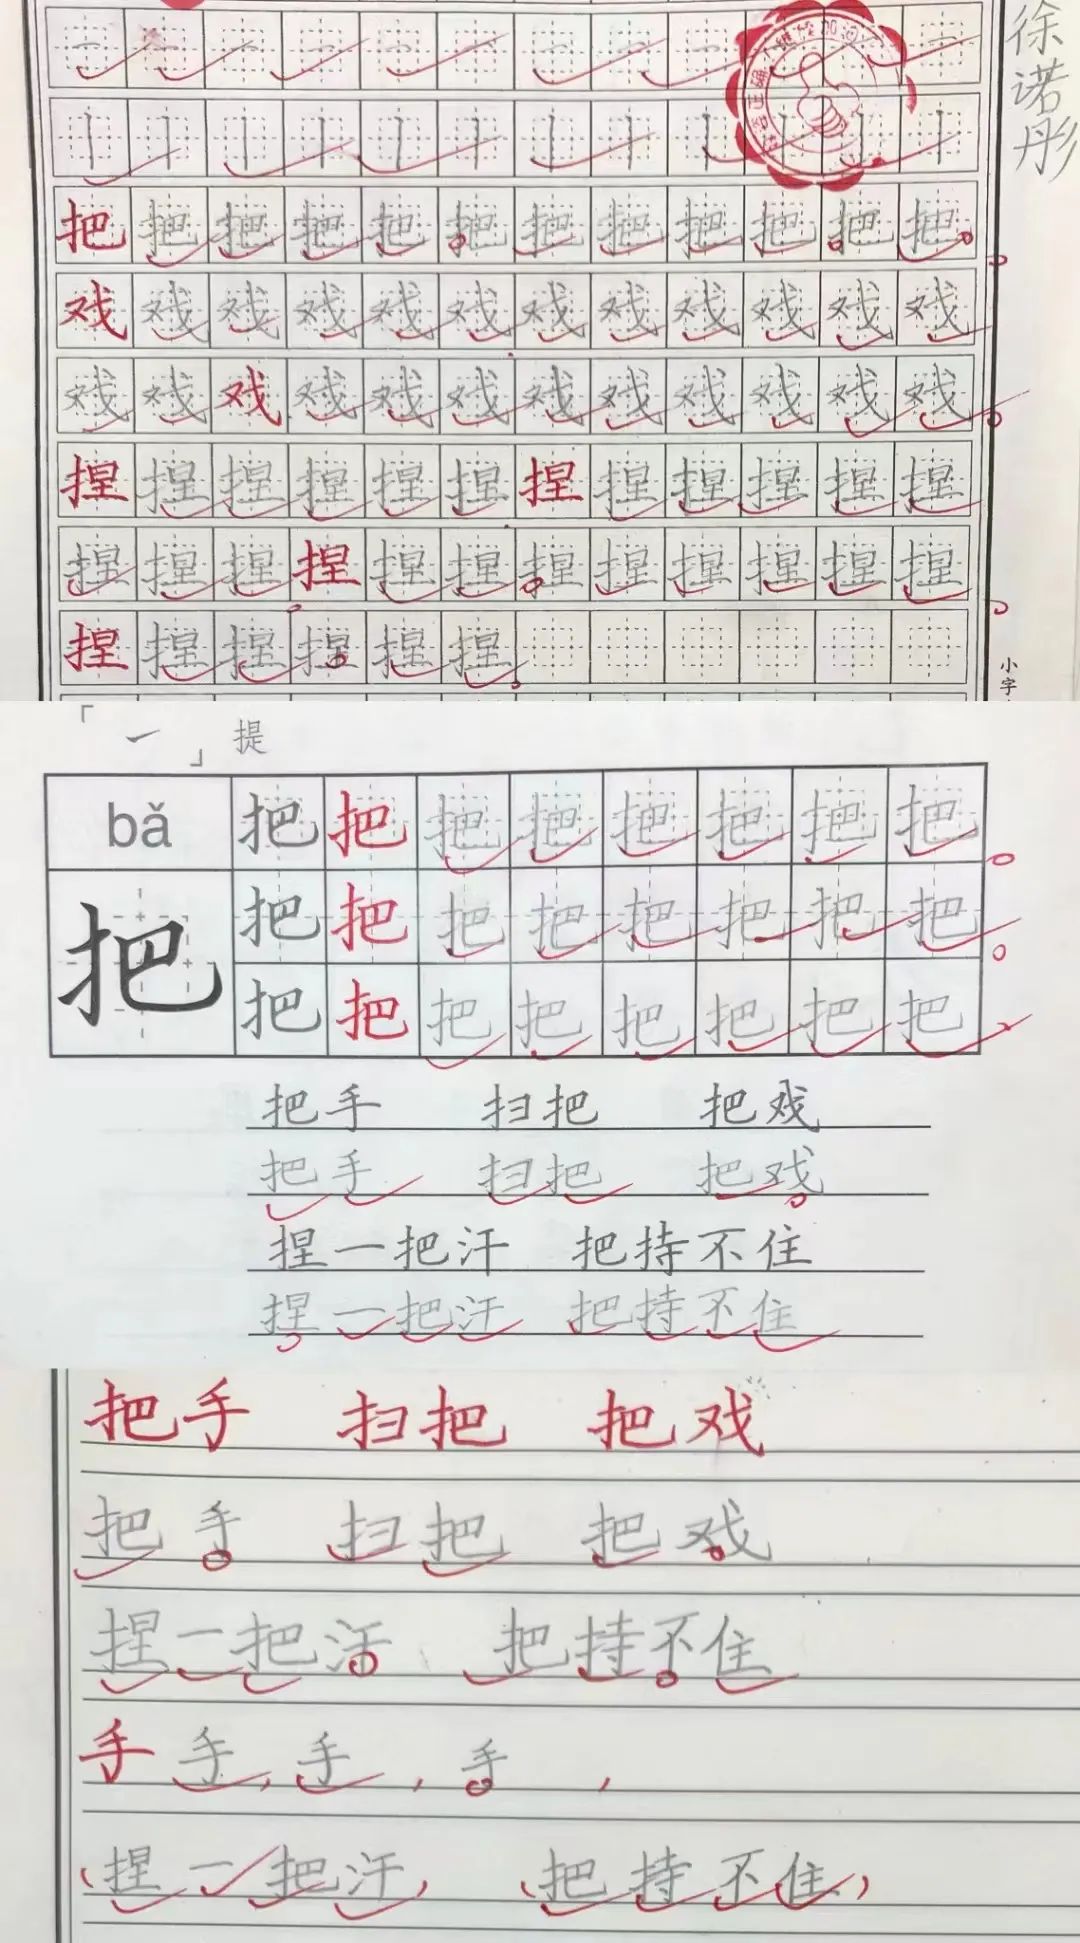 徐诺彤
一 一 一 一 一 一 一 一 一 一 一 一
丨 丨 丨 丨 丨 丨 丨 丨 丨 丨 丨 丨
把 把 把 把 把 把 把 把 把 把 把 把
戏 戏 戏 戏 戏 戏 戏 戏 戏 戏 戏 戏
戏 戏 戏 戏 戏 戏 戏 戏 戏 戏 戏 戏
捏 捏 捏 捏 捏 捏 捏 捏 捏 捏 捏 捏
捏 捏 捏 捏 捏 捏 捏 捏 捏 捏 捏 捏
捏 捏 捏 捏 捏 捏
小字
「㇀」提
bǎ 把 把 把 把 把 把 把 把
把 把 把 把 把 把 把 把 把
把 把 把 把 把 把 把 把
把手 扫把 把戏
把手 扫把 把戏
捏一把汗 把持不住
捏一把汗 把持不住
把手 扫把 把戏
把手 扫把 把戏
捏一把汗 把持不住
手 手, 手, 手,
(捏一把汗) (把持不住)